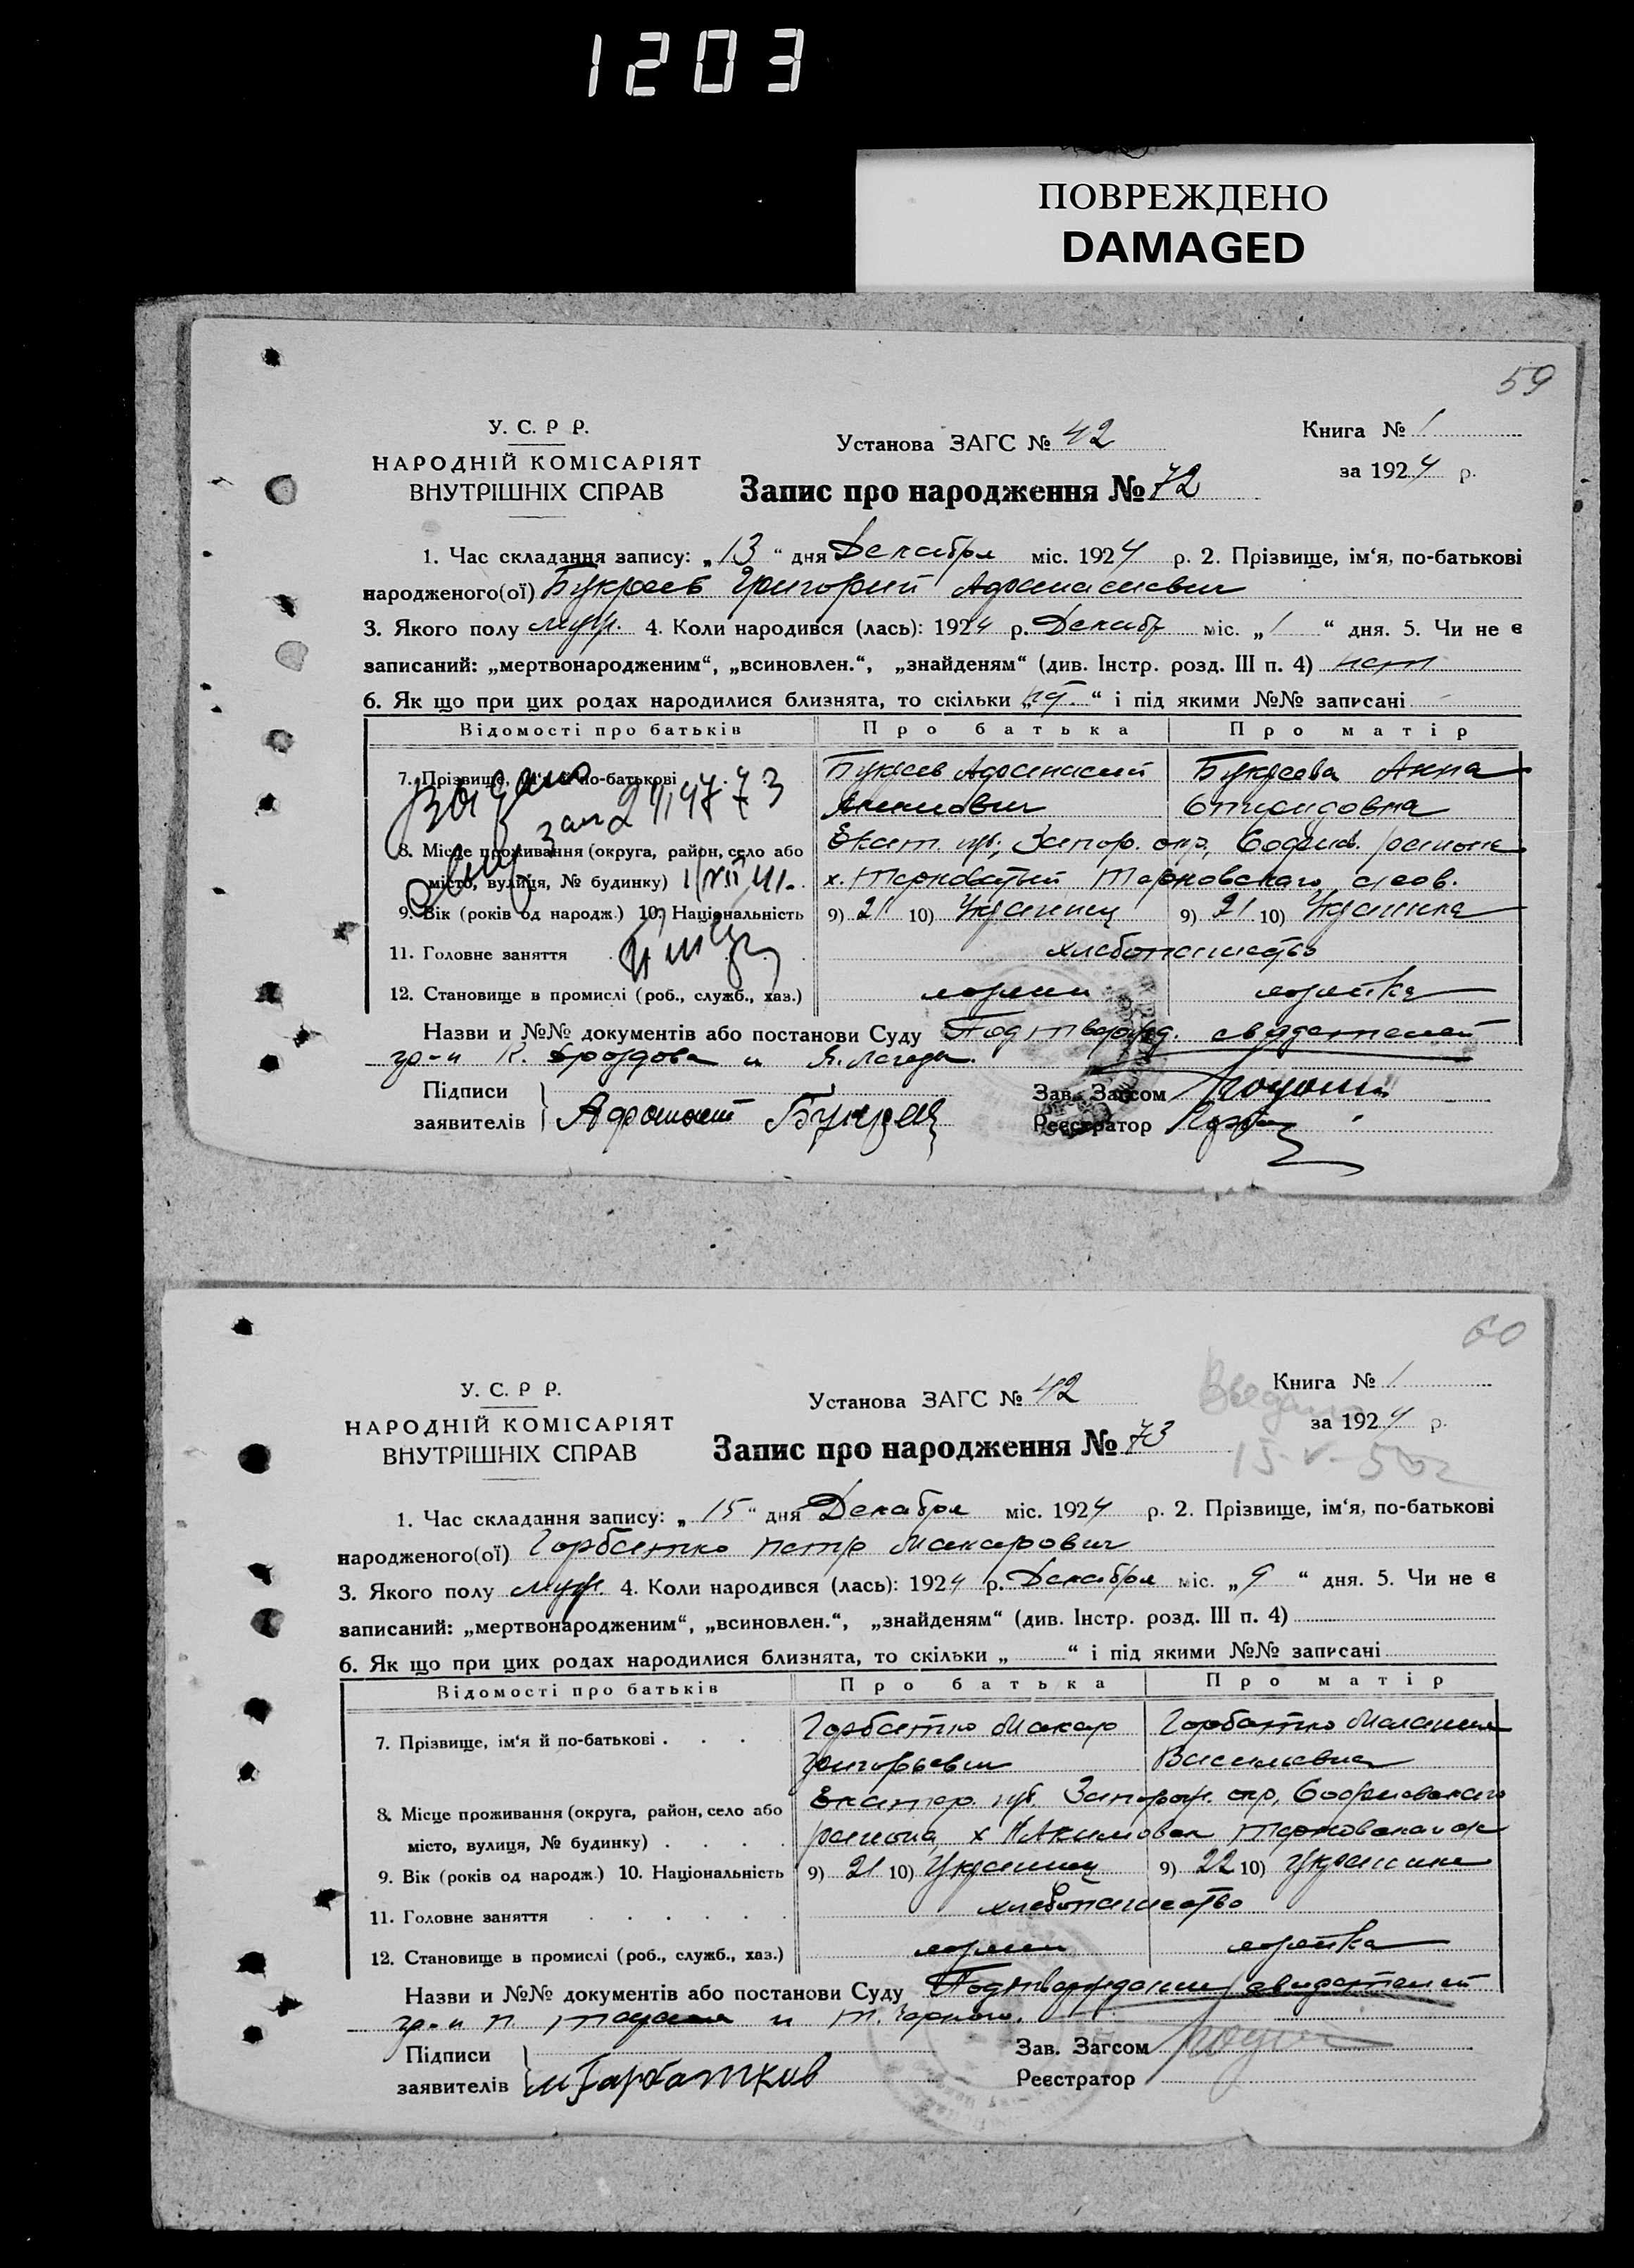 1203
ПОВРЕЖДЕНО
DAMAGED
59
У. С. Р Р.
НАРОДНІЙ КОМІСАРІЯТ
ВНУТРІШНІХ СПРАВ
Установа ЗАГС № 42
Запис про народження № 72
Книга № 1
за 1924 р.
1. Час складання запису: „ 13 “ дня Декабря міс. 1924 р. 2. Прізвище, ім‘я, по-батькові
народженого(ої) Букреев Григорий Афанасиевич
3. Якого полу муж. 4. Коли народився (лась): 1924 р. Декабр міс. „ 1 “ дня. 5. Чи не є
записаний: „мертвонародженим“, „всиновлен.“, „знайденям“ (див. Інстр. розд. III п. 4) нет
6. Як що при цих родах народилися близнята, то скільки „ “ і під якими №№ записані
Відомості про батьків Про батька Про матір
7. Прізвище, ім‘я й по-батькові Букреев Афанасий Букреева Анна
Спиридовна
8. Місце проживання (округа, район, село або Екат. губ., Запор. окр., Софиев. района
місто, вулиця, № будинку) х. Терноватый Терновского с/сов.
9. Вік (років од народж.) 10. Національність 9) 21 10) Украинец 9) 21 10) Украинка
11. Головне заняття хлебопашество
12. Становище в промислі (роб., служб., хаз.) хозяин хозяйка
Назви и №№ документів або постанови Суду Подтвержд. свидетелей
гр-н К. и
Підписи
заявителів Афанасий Букреев
Зав. Загсом
Реєстратор
60
У. С. Р Р.
НАРОДНІЙ КОМІСАРІЯТ
ВНУТРІШНІХ СПРАВ
Установа ЗАГС № 42
Запис про народження № 73
Книга № 1
за 1924 р.
Выдано
15-V-50г
1. Час складання запису: „ 15 “ дня Декабря міс. 1924 р. 2. Прізвище, ім‘я, по-батькові
народженого(ої) Горбатко Петр Макарович
3. Якого полу муж. 4. Коли народився (лась): 1924 р. Декабря міс. „ 9 “ дня. 5. Чи не є
записаний: „мертвонародженим“, „всиновлен.“, „знайденям“ (див. Інстр. розд. III п. 4)
6. Як що при цих родах народилися близнята, то скільки „ “ і під якими №№ записані
Відомості про батьків Про батька Про матір
7. Прізвище, ім‘я й по-батькові Горбатко Макар Горбатко Мелания
Григорьевич Васильевна
8. Місце проживання (округа, район, село або Екатер. губ. Запорож. окр., Софиевского
місто, вулиця, № будинку) района, х
9. Вік (років од народж.) 10. Національність 9) 21 10) Украинец 9) 22 10) Украинка
11. Головне заняття хлебопашество
12. Становище в промислі (роб., служб., хаз.) хозяин хозяйка
Назви и №№ документів або постанови Суду Подтверждении свидетелей
гр-н П. и
Підписи
заявителів
Зав. Загсом
Реєстратор